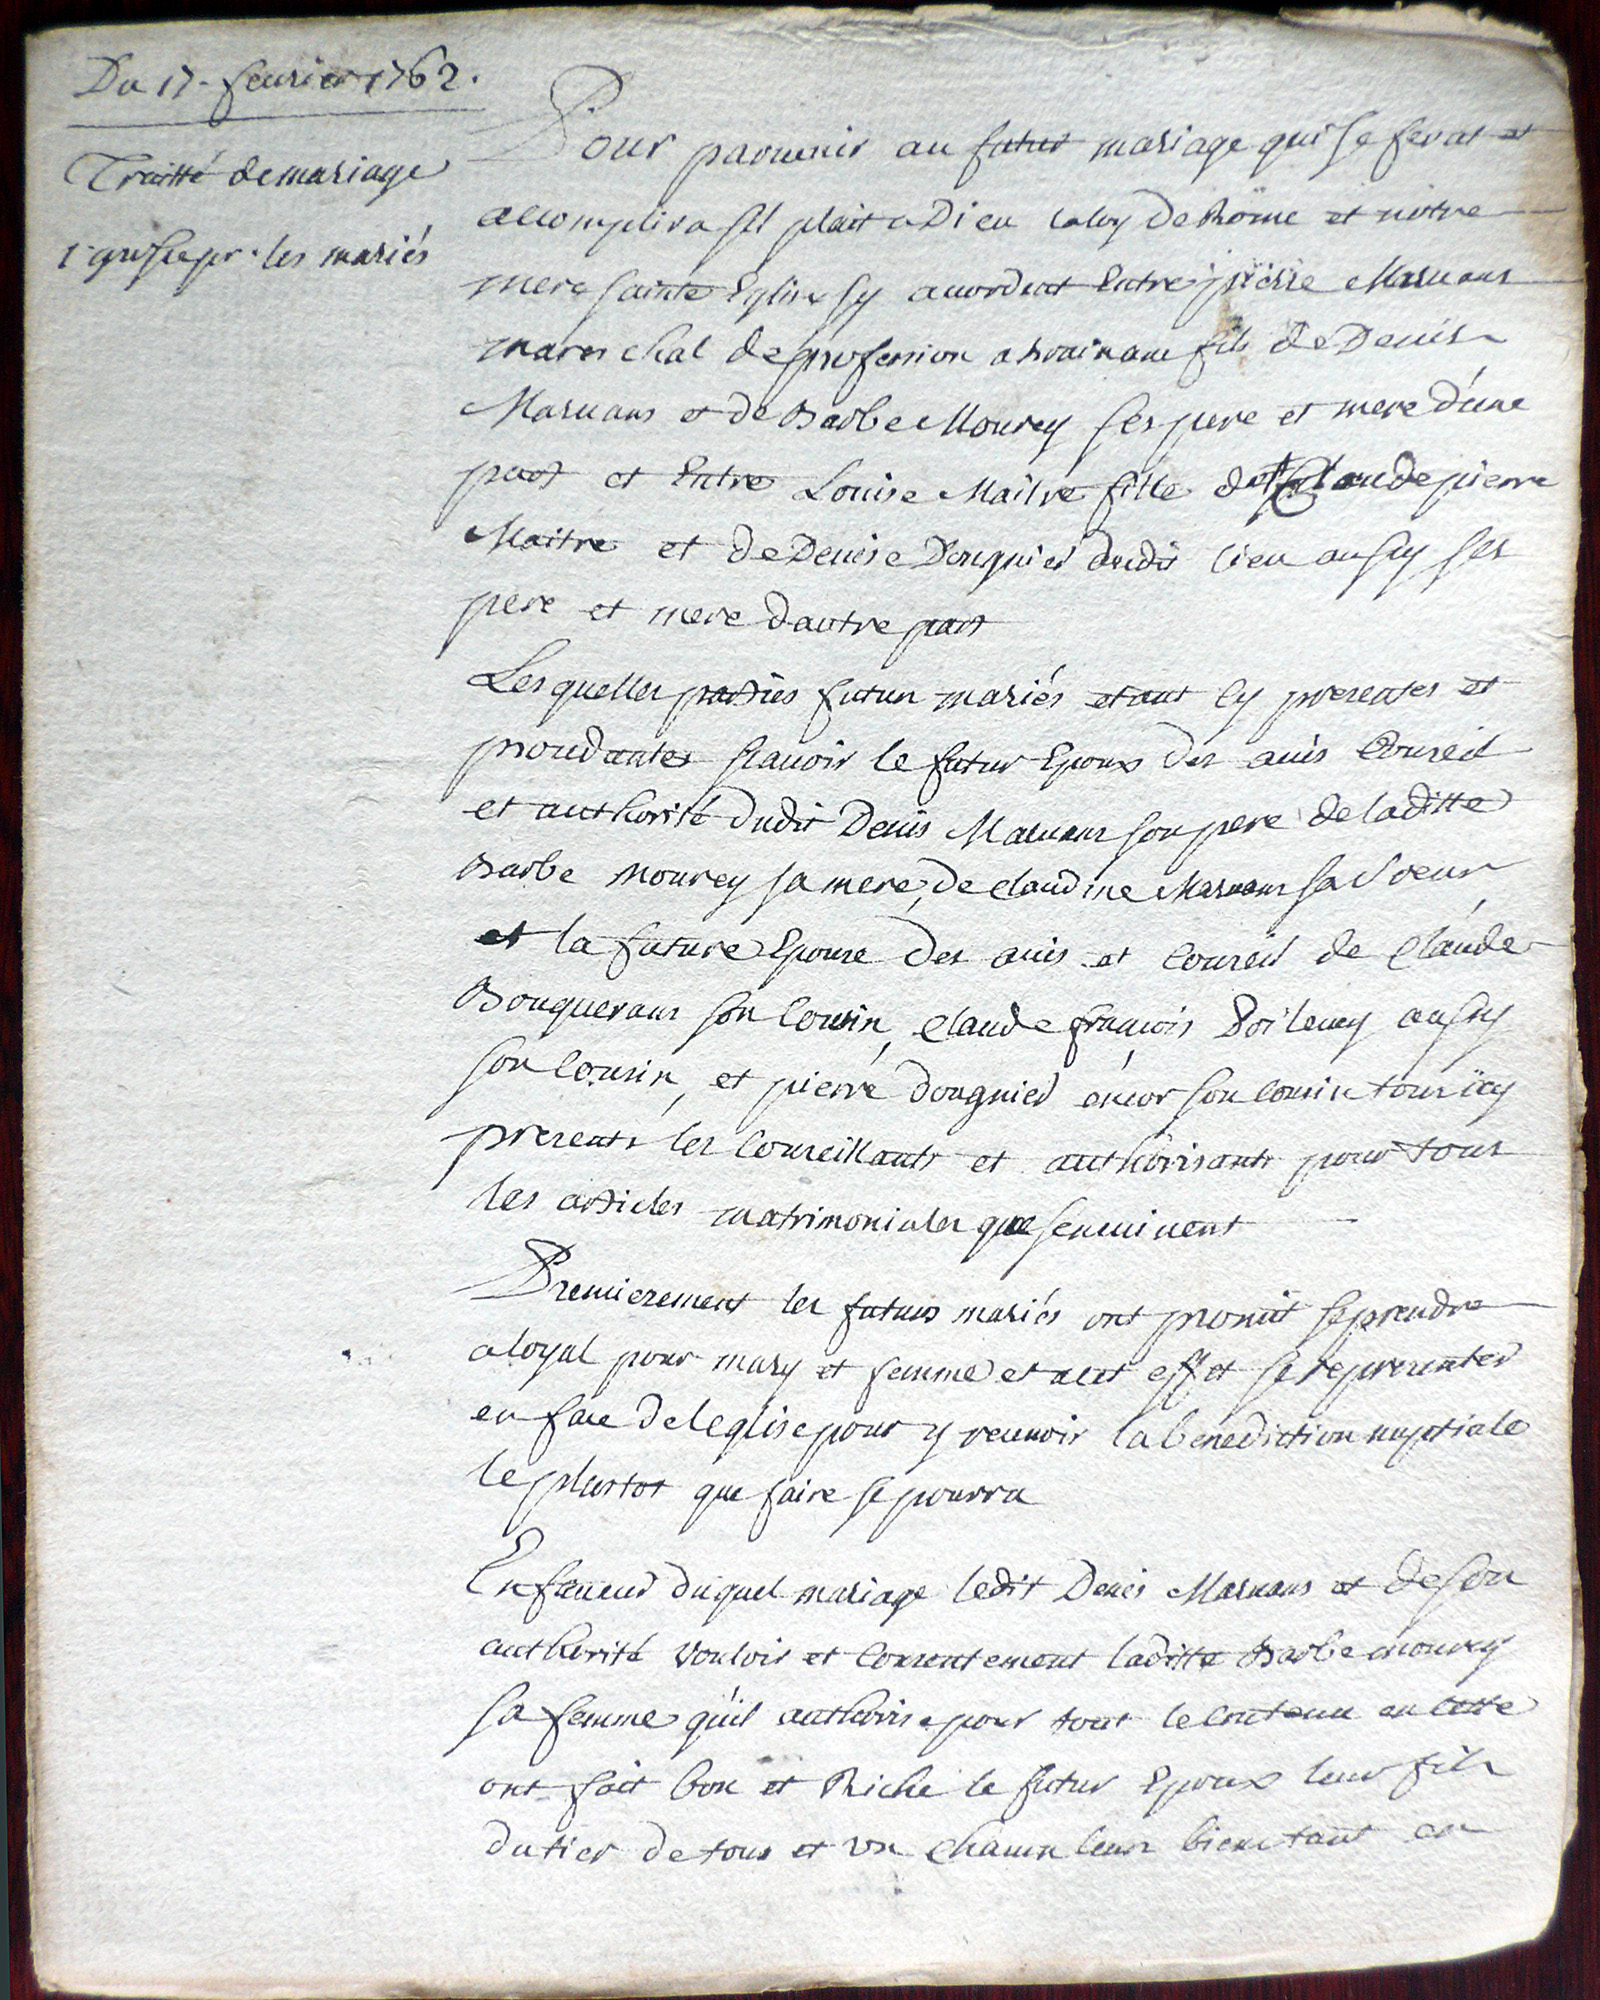 Du 17. feurier 1762.
Traitté de mariage
1 grosse pr. les mariés
Pour paruenir au futur mariage qui se ferat et
acomplira sil plait a Dieu la loy de Rome et nôtre
mere sainte Eglise sy acordent Entre pierre Maruans
mareschal de profession a fils de Denis
Maruans et de Barbe Mourey ses pere et mere d'une
part et Entre Louise Maitre fille de Claude pierre
Maitre et de Denise Dougnier dudit lieu aussy ses
pere et mere dautre part
Lesquelles parties futur mariés etant Cy presentes et
procedantes scauoir le futur Epoux des auis Conseil
et authorité dudit Denis Maruans son pere de laditte
Barbe Mourey sa mere, de Claudine Maruans sa soeur
et la future Epouse des auis et Conseil de Claude
Bouquerans son Cousin, Claude françois aussy
son Cousin, et pierre dougnier encor son Cousin tous icy
presents les Conseillants et authorisants pour tous
les articles matrimoniales que senuiuent
Premierement les futurs mariés ont promit se prendre
a loyal pour mary et femme et a cet effet se representer
en face de leglise pour y receuoir la bénédiction nuptiale
le plustot que faire se pourra
En faueur duquel mariage ledit Denis Maruans et de son
authorité vouloir et Consentement laditte Barbe mourey
sa femme qu'il authorise pour tout le Contenu en cette
ont fait bon et Riche le futur Epoux leur fils
du tier de tous et vn Chacun leur biens tant en